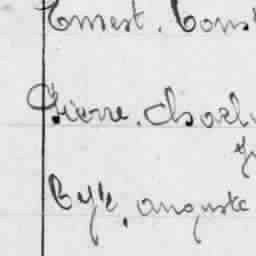 Ernest. Cons
Pierre. Charl
auguste